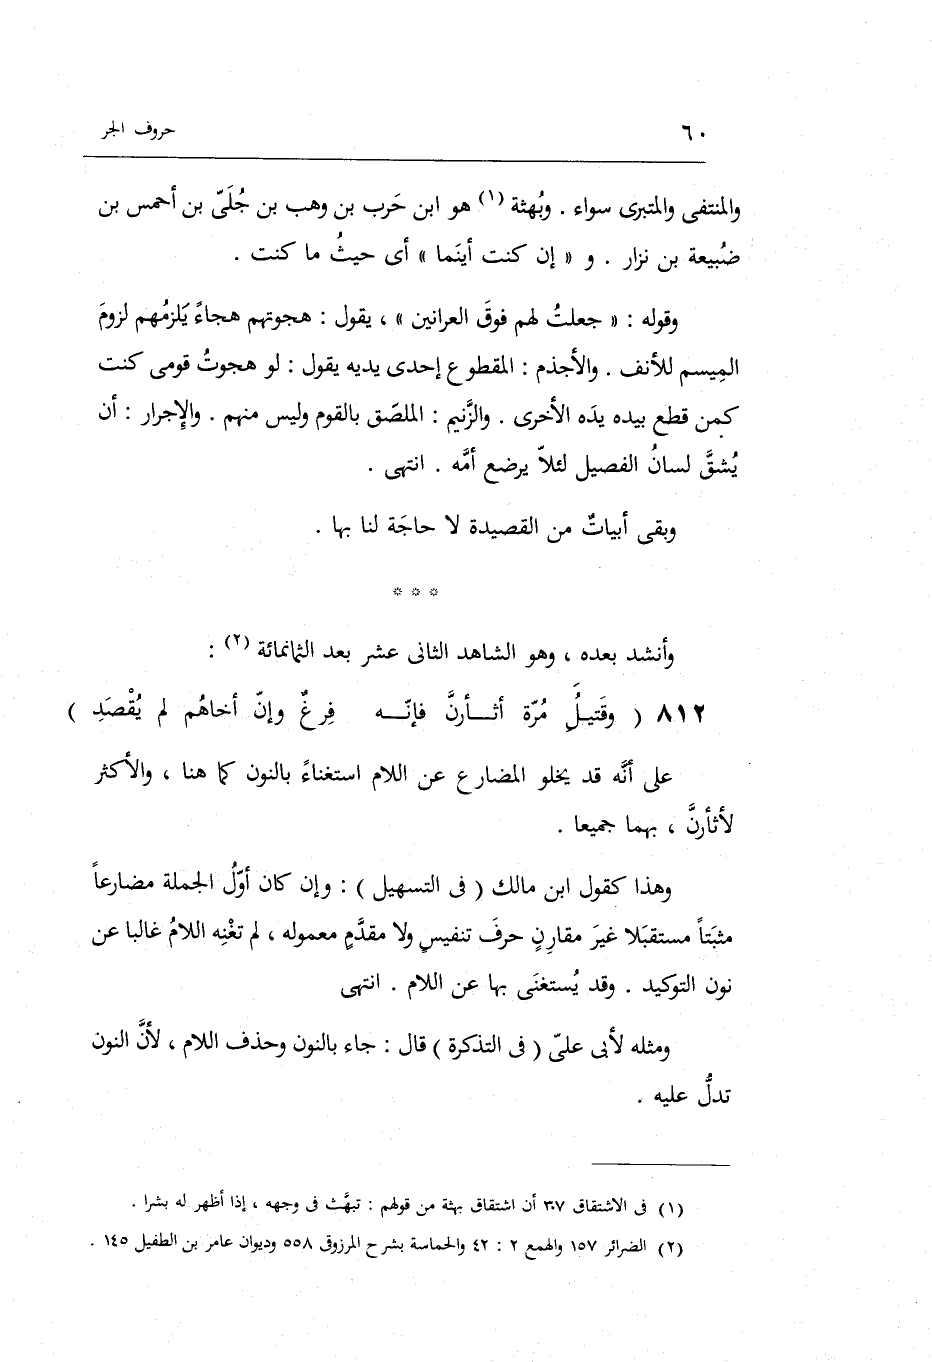 ٦٠ حروف الجر
والمنتفى والمتبرى سواء . وبُهثة (١) هو ابن حَرب بن وهب بن جُلَىّ بن أحمس بن
ضُبيعة بن نزار . و « إن كنت أينَما » أى حيثُ ما كنت .
وقوله : « جعلتُ لهم فوقَ العرانين » ، يقول : هجوتهم هجاءً يَلزمُهم لزومَ
المِيسم للأنف . والأجذم : المقطوع إحدى يديه يقول : لو هجوتُ قومى كنت
كمن قطع بيده يدَه الأخرى . والزَّنيم : الملصَق بالقوم وليس منهم . والإجرار : أن
يُشقَّ لسانُ الفصيل لئلاّ يرضع أمَّه . انتهى .
وبقى أبياتٌ من القصيدة لا حاجَة لنا بها .
* * *
وأنشد بعده ، وهو الشاهد الثانى عشر بعد الثمانمائة (٢) :
٨١٢ ( وقَتيلُِ مُرّةَ أثــأرنَّ فإنّــه فِرغٌ وإنّ أخاهُم لم يُقْصَدِ )
على أنَّه قد يخلو المضارع عن اللام استغناءً بالنون كما هنا ، والأكثر
لأثأرنَّ ، بهما جميعا .
وهذا كقول ابن مالك ( فى التسهيل ) : وإن كان أوّلُ الجملة مضارعاً
مثبَتاً مستقبَلا غيرَ مقارِنٍ حرفَ تنفيسٍ ولا مقدَّمٍ معموله ، لم تغْنِه اللامُ غالبا عن
نون التوكيد . وقد يُستغنَى بها عن اللام . انتهى
ومثله لأبى علىّ ( فى التذكرة ) قال : جاء بالنون وحذف اللام ، لأنَّ النون
تدلُّ عليه .
(١) فى الاشتقاق ٣٠٧ أن اشتقاق بهثة من قولهم : تبهَّث فى وجهه ، إذا أظهر له بشرا .
(٢) الضرائر ١٥٧ والهمع ٢ : ٤٢ والحماسة بشرح المرزوقى ٥٥٨ وديوان عامر بن الطفيل ١٤٥ .